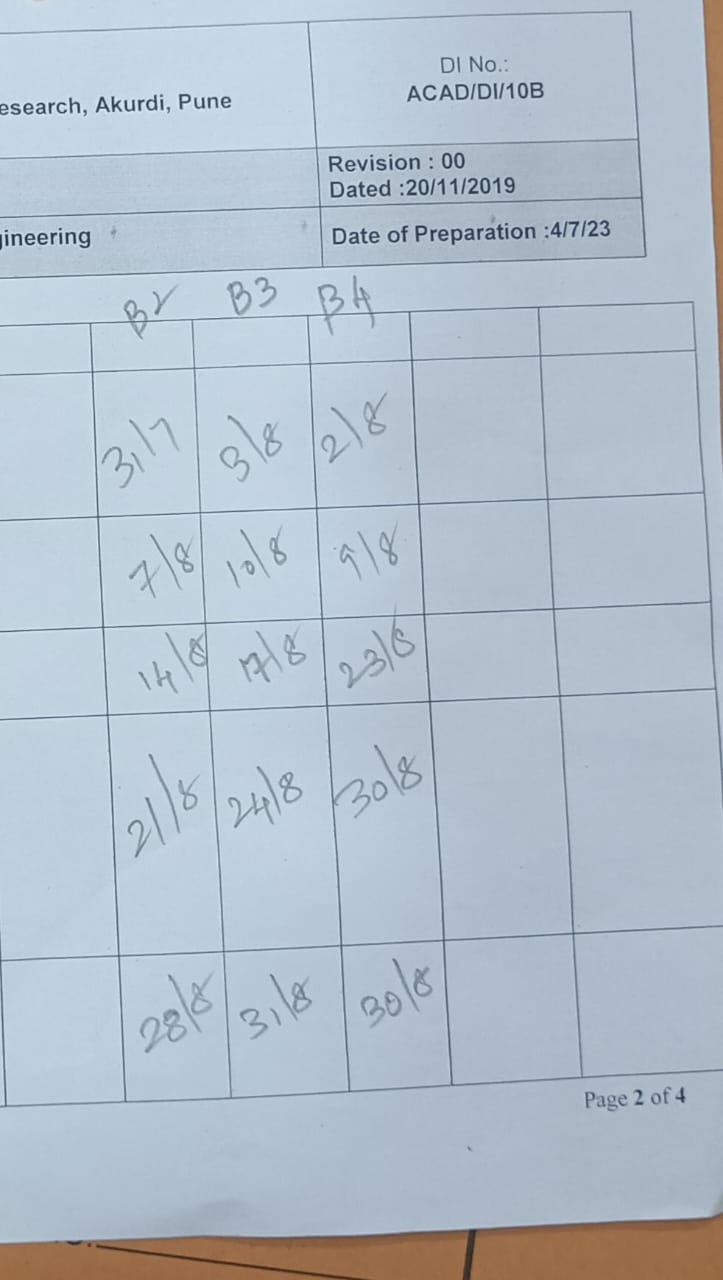 DI No.:
esearch, Akurdi, Pune ACAD/DI/10B
Revision : 00
Dated :20/11/2019
gineering Date of Preparation :4/7/23
B2 B3 B4
31/7 3/8 2/8
7/8 10/8 9/8
14/8 17/8 23/8
21/8 24/8 30/8
28/8 31/8 30/8
Page 2 of 4